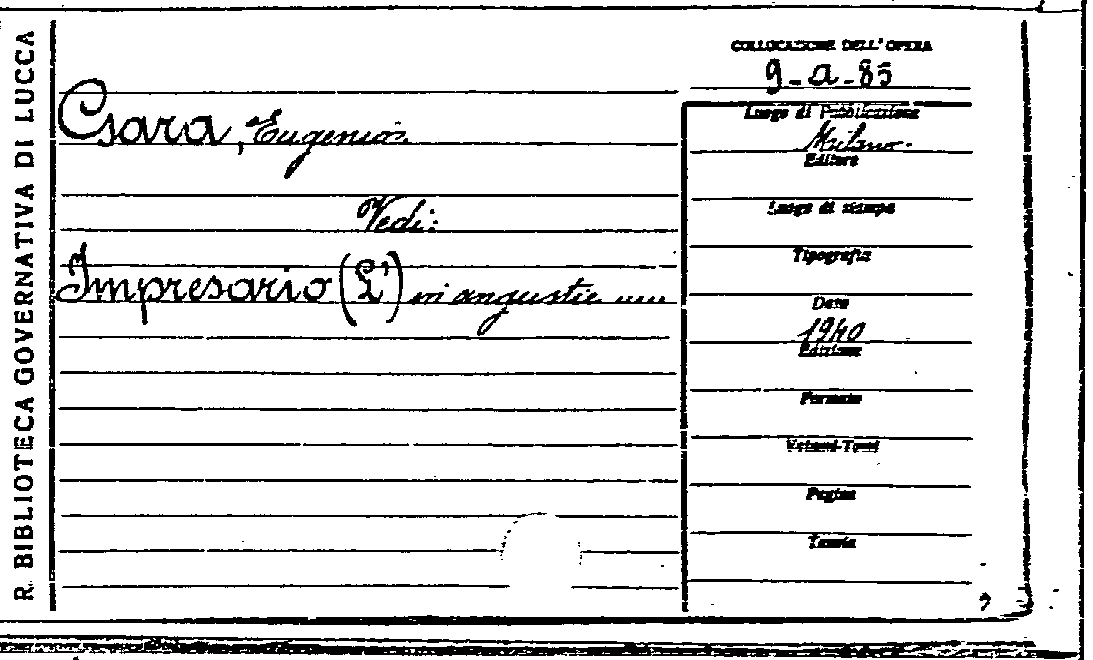 R. BIBLIOTECA GOVERNATIVA DI LUCCA
COLLOCAZIONE DELL'OPERA
9-a-85
Gara, Eugenio.
Luogo di Pubblicazione
Milano.
Editore
Vedi:
Luogo di stampa
Impresario (L') in angustie ....
Tipografia
Data
1940
Edizione
Formato
Volumi-Tomi
Pagine
Tavole